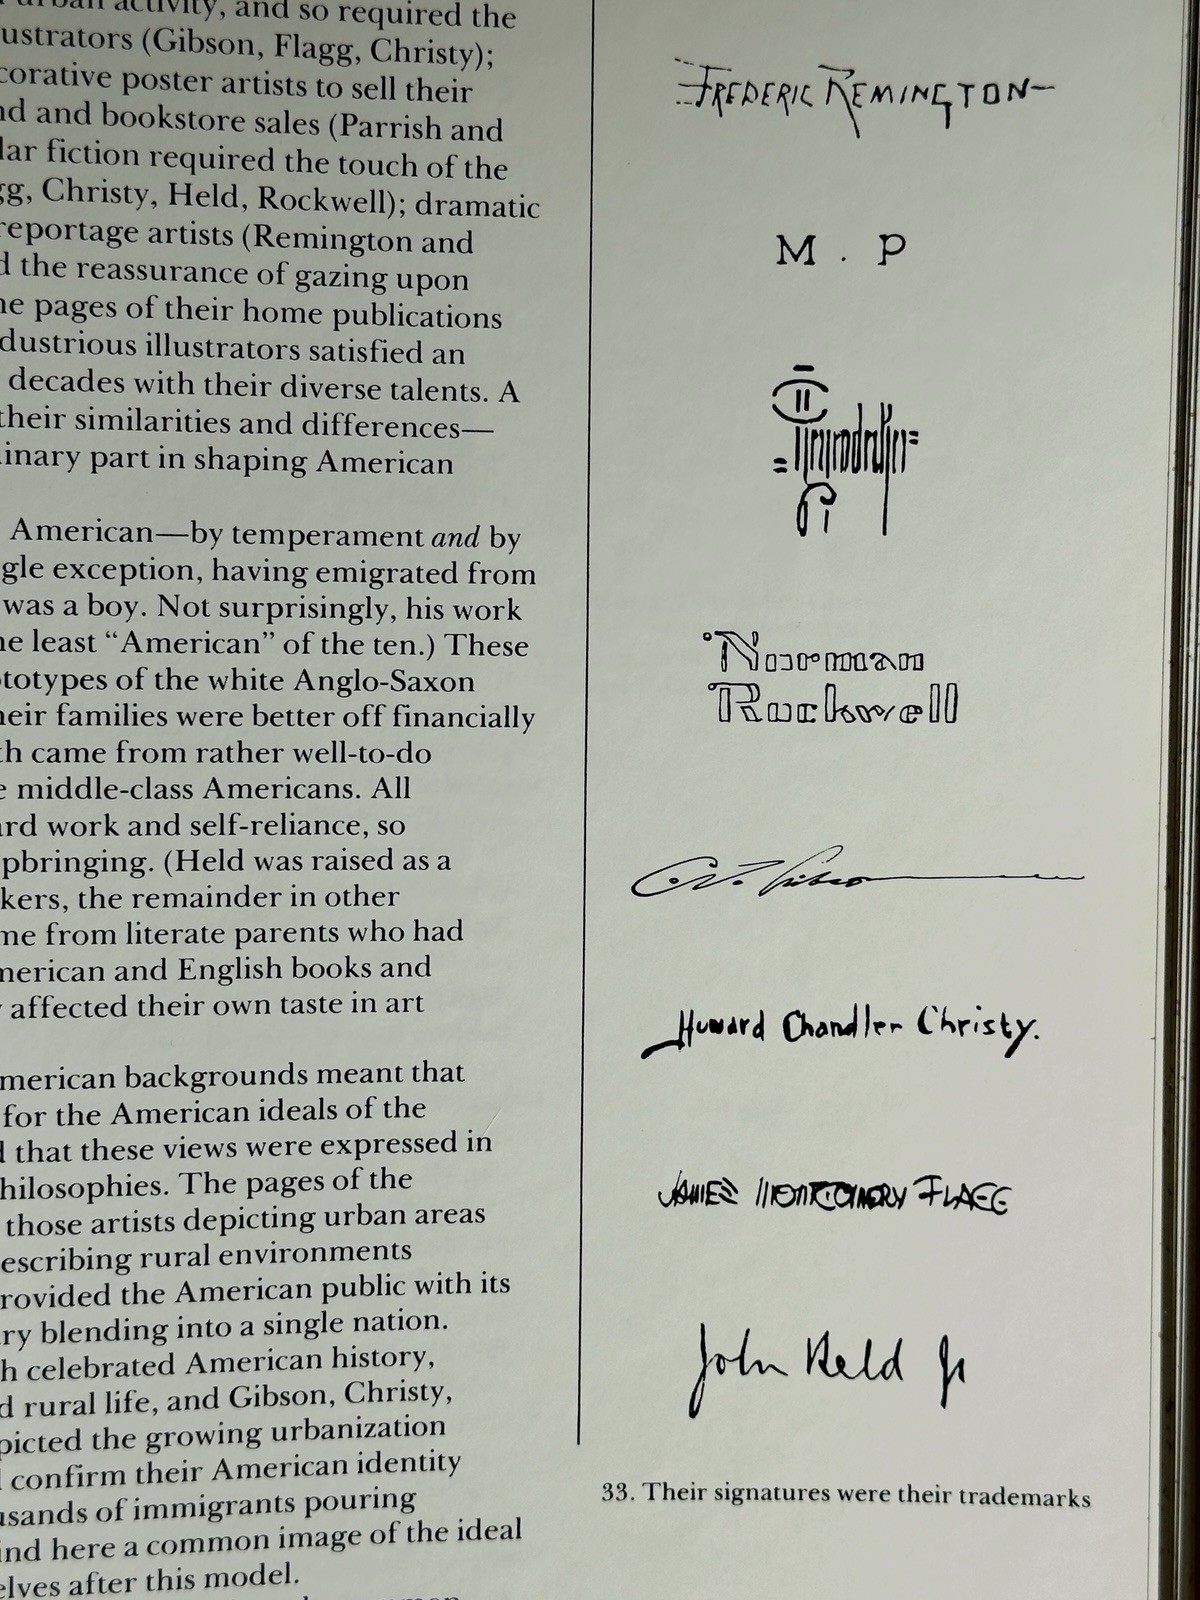 urban activity, and so required the
ustrators (Gibson, Flagg, Christy);
corative poster artists to sell their
nd and bookstore sales (Parrish and
lar fiction required the touch of the
gg, Christy, Held, Rockwell); dramatic
reportage artists (Remington and
d the reassurance of gazing upon
he pages of their home publications
dustrious illustrators satisfied an
decades with their diverse talents. A
their similarities and differences—
linary part in shaping American
American—by temperament and by
gle exception, having emigrated from
was a boy. Not surprisingly, his work
he least “American” of the ten.) These
ototypes of the white Anglo-Saxon
heir families were better off financially
th came from rather well-to-do
e middle-class Americans. All
ard work and self-reliance, so
pbringing. (Held was raised as a
kers, the remainder in other
me from literate parents who had
merican and English books and
affected their own taste in art
merican backgrounds meant that
for the American ideals of the
d that these views were expressed in
hilosophies. The pages of the
those artists depicting urban areas
escribing rural environments
rovided the American public with its
ry blending into a single nation.
h celebrated American history,
d rural life, and Gibson, Christy,
picted the growing urbanization
confirm their American identity
usands of immigrants pouring
ind here a common image of the ideal
elves after this model.
FREDERIC REMINGTON—
M . P
Norman
Rockwell
C. D. Gibson
Howard Chandler Christy.
JAMES MONTGOMERY FLAGG
John Held Jr
33. Their signatures were their trademarks